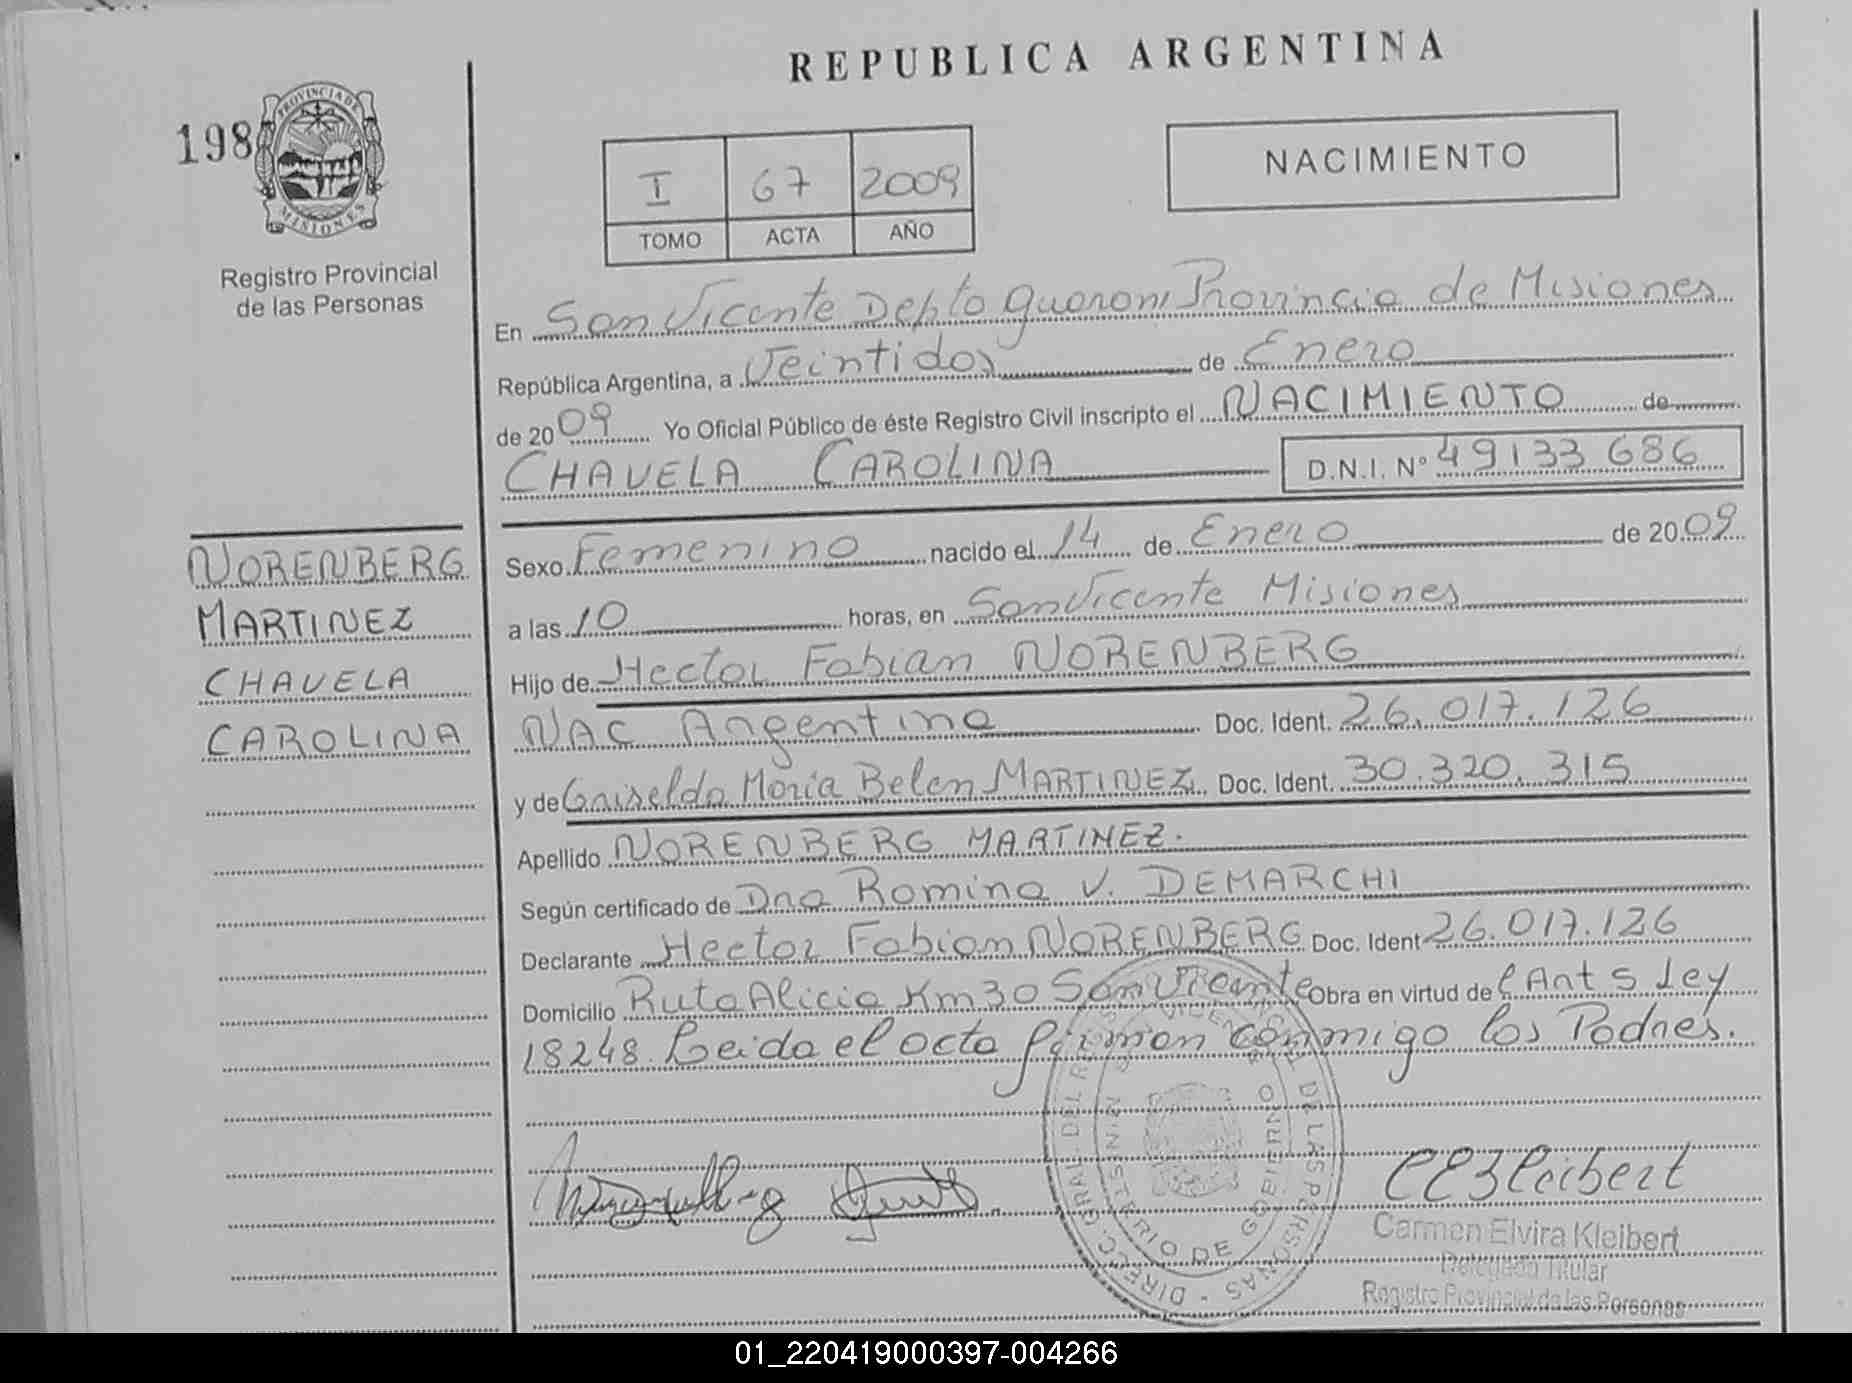 REPUBLICA ARGENTINA
198
PROVINCIA DE
MISIONES
Registro Provincial
de las Personas
I 67 2009
TOMO ACTA AÑO
NACIMIENTO
En San Vicente Depto Guarani Provincia de Misiones
República Argentina, a Veintidos de Enero
de 2009 Yo Oficial Público de éste Registro Civil inscripto el NACIMIENTO de
CHAVELA CAROLINA D.N.I. Nº 49133 686
NORENBERG
MARTINEZ
CHAVELA
CAROLINA
Sexo Femenino nacido el 14 de Enero de 2009
a las 10 horas, en San Vicente Misiones
Hijo de Hector Fabian NORENBERG
NAC Argentina Doc. Ident. 26.017.126
y de Griselda Maria Belen MARTINEZ Doc. Ident. 30.320.315
Apellido NORENBERG MARTINEZ.
Según certificado de Dna Romina V. DEMARCHI
Declarante Hector Fabian NORENBERG Doc. Ident 26.017.126
Domicilio Ruta Alicia Km 30 San Vicente Obra en virtud de l Art 5 Ley
18248. Leida el acta firman conmigo los Padres.
DIREC. GRAL. DEL DE LAS PERSONAS
MINISTERIO DE GOBIERNO
CEKleibert
Carmen Elvira Kleibert
Delegada Titular
Registro Provincial de las Personas
01_220419000397-004266